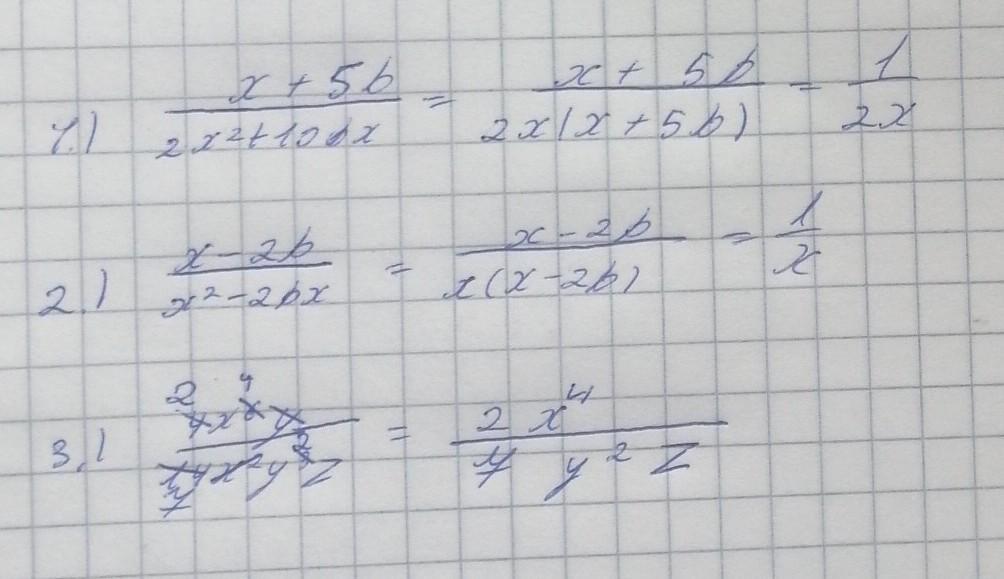 1.) x + 5b / 2x²+10bx = x + 5b / 2x(x + 5b) = 1 / 2x
2.) x - 2b / x² - 2bx = x - 2b / x(x - 2b) = 1 / x
3.) = 2 x⁴ / 7 y² z